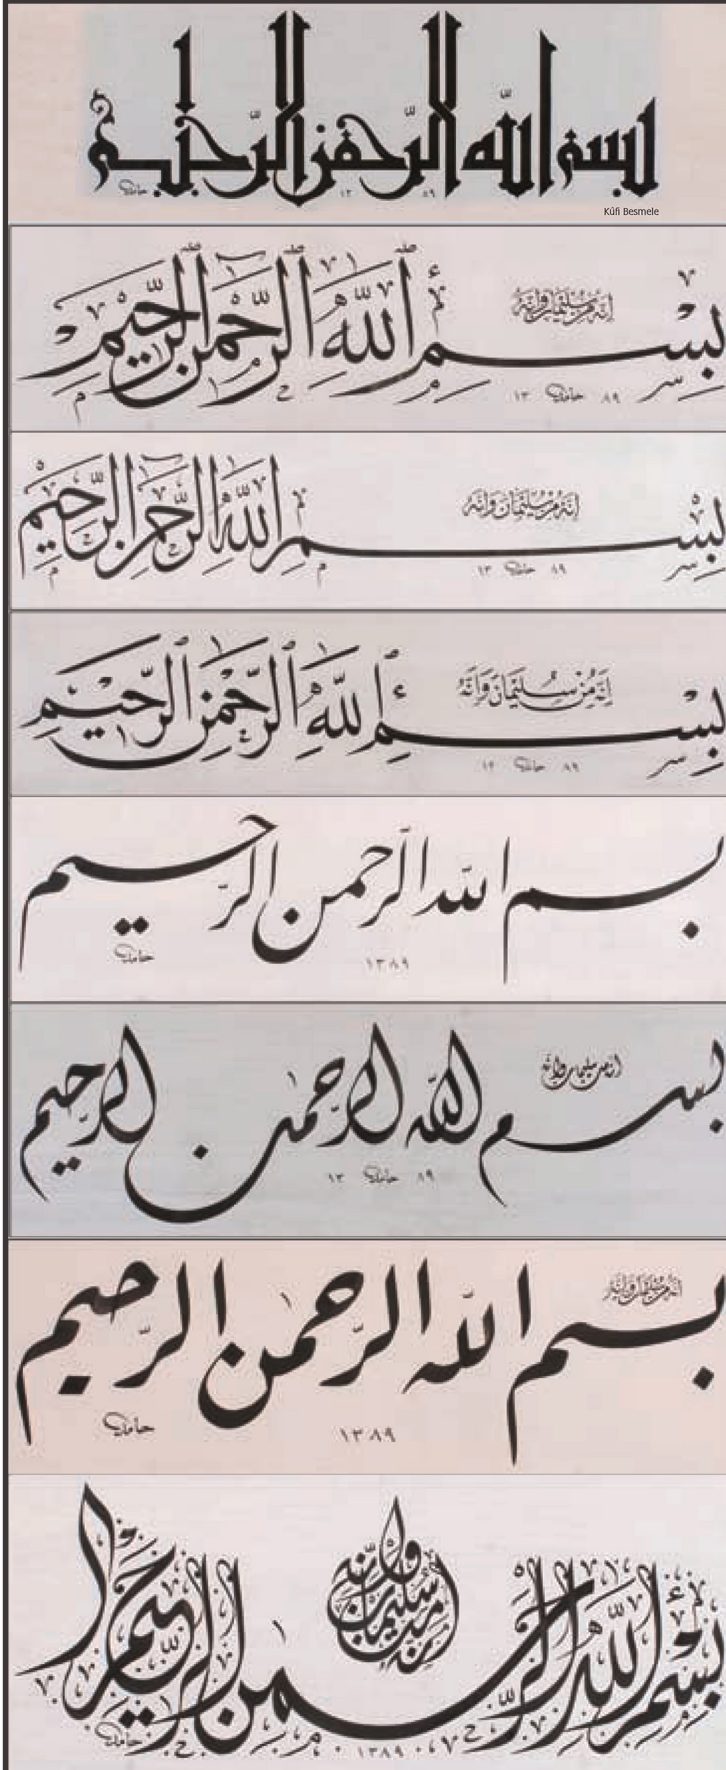 بسم الله الرحمن الرحيم
حامد ١٣٨٩
Kûfi Besmele
إنه من سليمان وإنه
بِسْمِ اللهِ الرَّحْمنِ الرَّحِيمِ
١٣ حامد ٨٩
إنه من سليمان وإنه
بِسْمِ اللهِ الرَّحْمنِ الرَّحِيمِ
١٣ حامد ٨٩
إِنَّهُ مِنْ سُلَيْمَانَ وَإِنَّهُ
بِسْمِ اللهِ الرَّحْمنِ الرَّحِيمِ
١٣ حامد ٨٩
بسم الله الرحمن الرحيم
١٣٨٩ حامد
انه من سليمان وانه
بسم الله الرحمن الرحيم
١٣ حامد ٨٩
انه من سليمان وانه
بسم الله الرحمن الرحيم
١٣٨٩ حامد
انه من سليمان وانه
بِسْمِ اللهِ الرَّحْمنِ الرَّحِيمِ
١٣٨٩ حامد